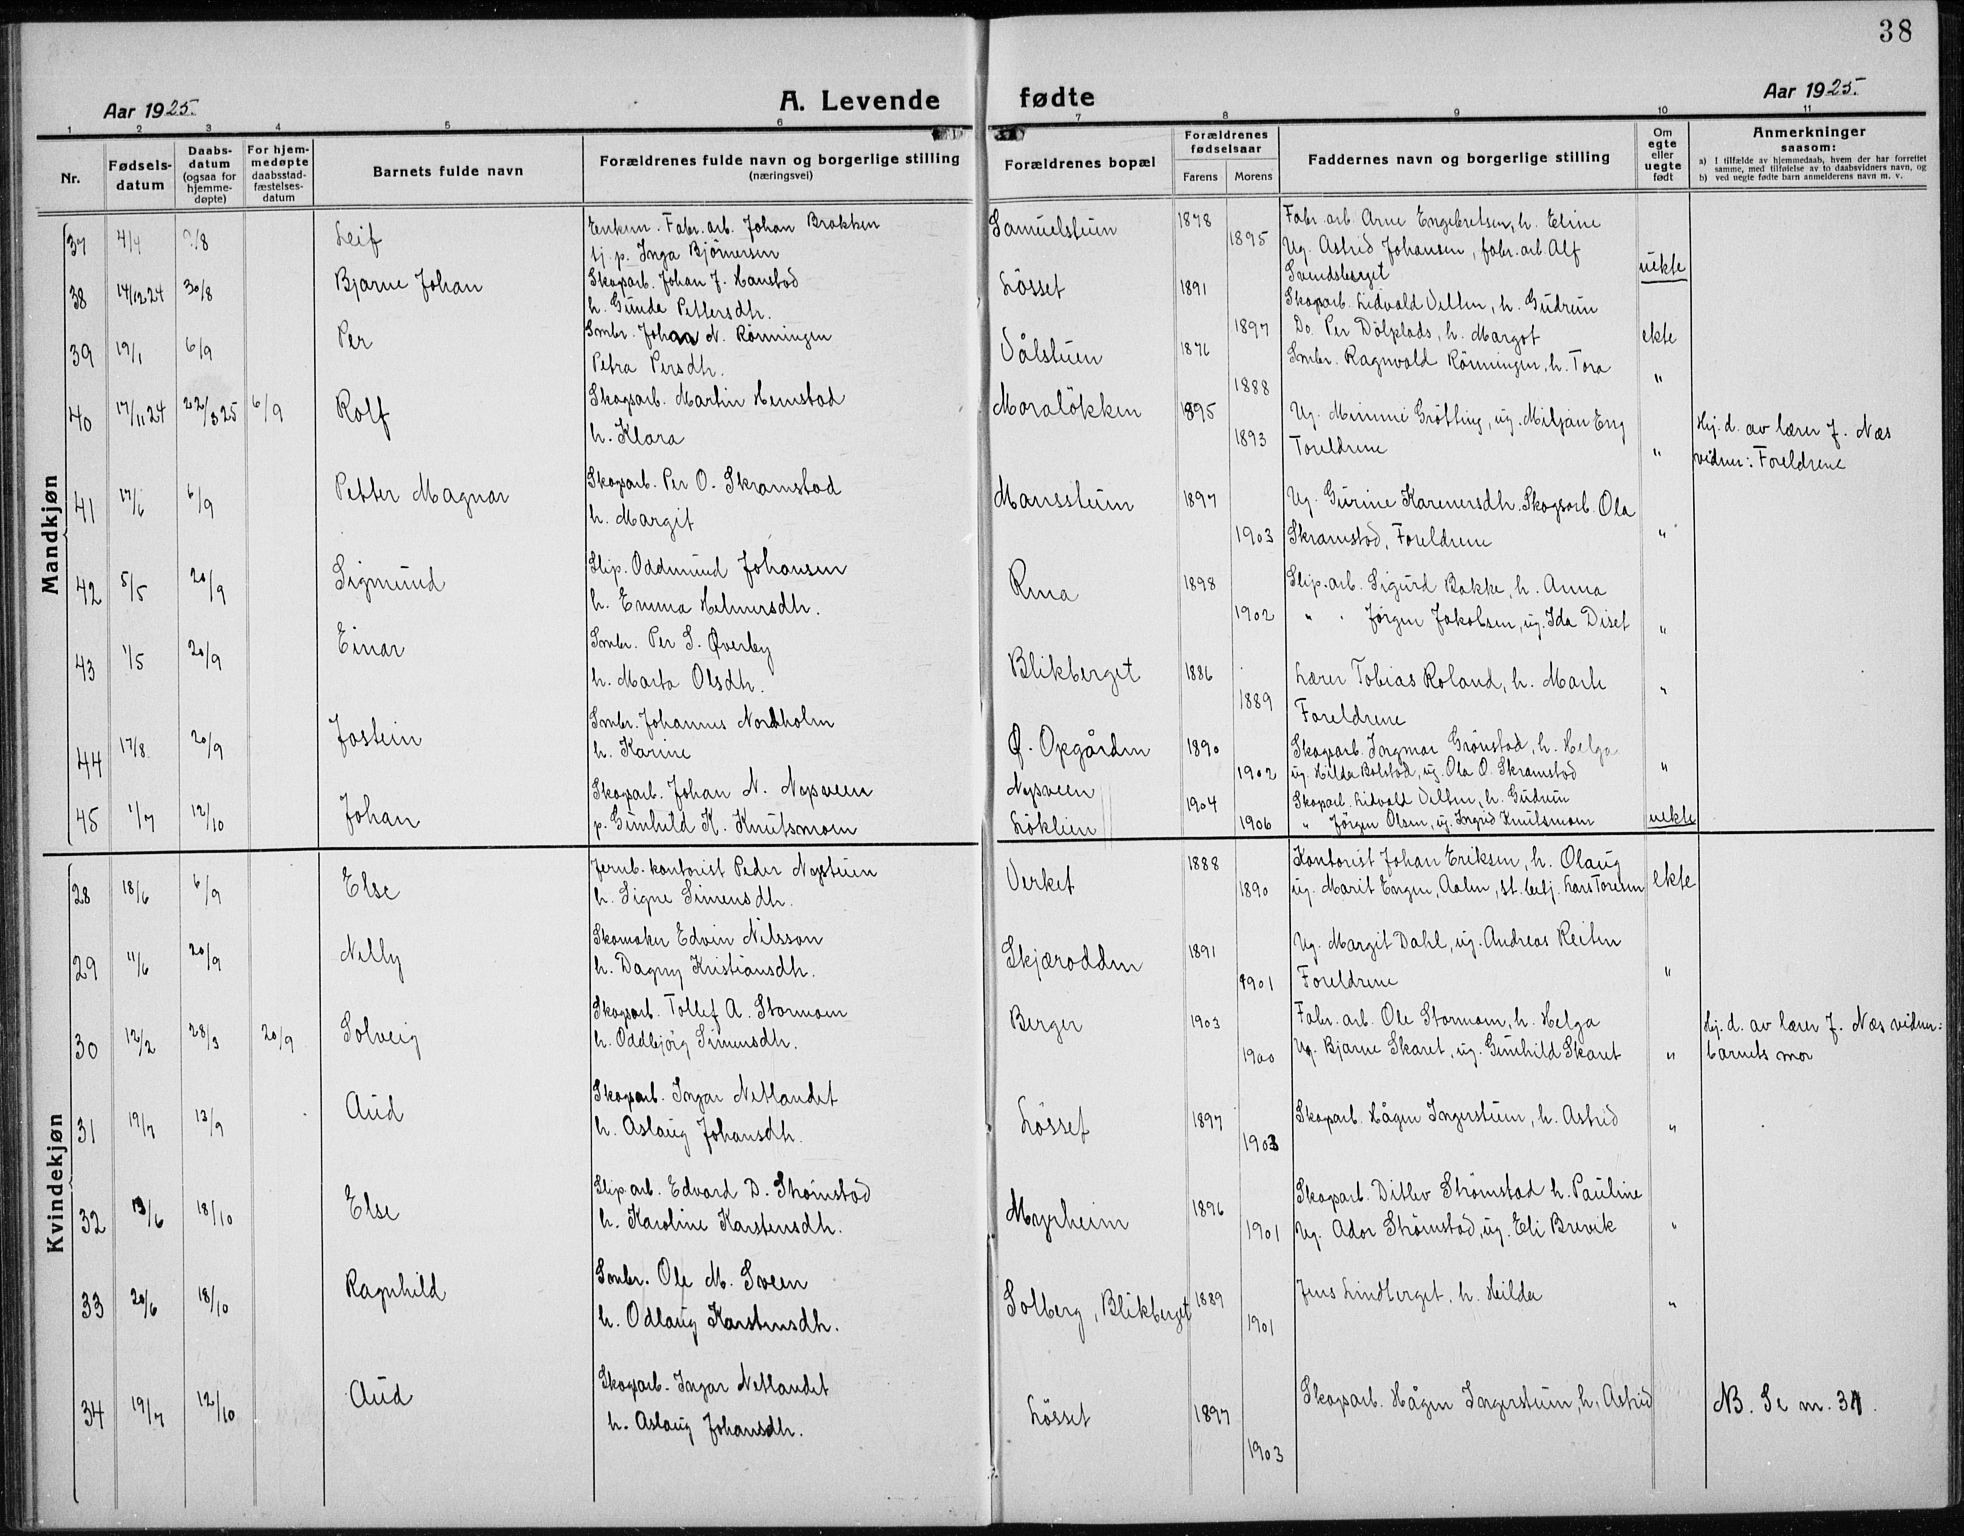 38
Aar 1925.
A. Levende
fødte
Aar 1925.
1 2 3 4 5 6 7 8 9 10 11
Nr.
Fødselsdatum
Daabsdatum (ogsaa for hjemmedøpte)
For hjemmedøpte daabsstadfæstelsesdatum
Barnets fulde navn
Forældrenes fulde navn og borgerlige stilling
(næringsvei)
Forældrenes bopæl
Forældrenes fødselsaar
Farens Morens
Faddernes navn og borgerlige stilling
Om egte eller uegte født
Anmerkninger
saasom:
a) I tilfælde av hjemmedaab, hvem der har forrettet samme, med tilføielse av to daabsvidners navn, og
b) ved uegte fødte barn anmelderens navn m. v.
Mandkjøn
37 4/4 /8 Leif Enkem. Fabr. arb. Johan Brakken Samuelstuen 1878 Fabr. arb. Arne Engebretsen, h. Eline
tj. p. Inga Bjørnersen 1895 Ug. Astrid Johansen, fabr. arb. Alf
Svendsberget uekte
38 14/12 24 30/8 Bjarne Johan Skogsarb. Johan J. Hanstad Lösset 1891 Skogsarb. Lidvald Velten, h. Gudrun
h. Gunda Pettersdh. 1897 Do. Per Dölplads, h. Margot ekte
39 19/1 6/9 Per Smbr. Johan N. Rönningen Vålstuen 1876 Smbr. Ragnvald Rönningen, h. Tora
Petra Persdh. 1888 "
40 17/11 24 22/3 25 6/9 Rolf Skogsarb. Martin Hemstad Moraløkken 1895 Ug. Mimmi Grötting, ug. Miljan Eng Hj. d. av lærer J. Næs
h. Klara 1893 Foreldrene " vidner: Foreldrene
41 17/6 6/9 Petter Magnar Skogsarb. Per O. Skramstad Mansstuen 1897 Ug. Gurine Karenersdh. Skogsarb. Ola
h. Margit 1903 Skramstad, Foreldrene "
42 5/5 20/9 Sigmund Slip. Oddmund Johansen Rena 1898 Slip. arb. Sigurd Bakke, h. Anna
h. Emma Helmersdh. 1902 " " Jørgen Jakobsen, ug. Ida Diset "
43 1/5 20/9 Einar Smbr. Per S. Øverby Blikberget 1886 Lærer Tobias Roland, h. Marte
h. Marta Olsdh. 1889 Foreldrene "
44 17/8 20/9 Jostein Smbr. Johannes Nordholm Ø. Opgården 1890 Skogsarb. Ingmar Grönstad, h. Helga
h. Karine 1902 ug. Hilda Bolstad, ug. Ola O. Skramstad "
45 1/7 12/10 Johan Skogsarb. Johan N. Nysveen Nysveen 1904 Skogsarb. Lidvald Velten, h. Gudrun
p. Gunhild K. Knutsmoen Löklien 1906 " Jørgen Olsen, ug. Ingrid Knutsmoen uekte
Kvindekjøn
28 18/6 6/9 Else Jernb. kontorist Peder Nystuen Verket 1888 Kontorist Johan Eriksen, h. Olaug
h. Signe Simensdh. 1890 ug. Marit Engen, Aalen, st. betj. Lars Toresen ekte
29 11/6 20/9 Nelly Skomaker Edvin Nilsson Skjærodden 1891 Ug. Margit Dahl, ug. Andreas Reiten
h. Dagny Kristiansdh. 1901 Foreldrene "
30 12/2 28/3 20/9 Solveig Skogsarb. Tollef A. Stormoen Berger 1903 Fabr. arb. Ole Stormoen, h. Helga Hj. d. av lærer J. Næs vidner:
h. Oddbjörg Simensdh. 1900 Ug. Bjarne Skaret, ug. Gunhild Skaret " barnets mor
31 19/7 13/9 Aud Skogsarb. Ingar Netlandet Lösset 1897 Skogsarb. Hågen Ingerstuen, h. Astrid
h. Aslaug Johansdh. 1903 "
32 13/6 18/10 Else Slip. arb. Edvard D. Strömstad Myrheim 1896 Skogsarb. Ditlev Strömstad h. Pauline
h. Karoline Karstensdh. 1901 Ug. Ador Strömstad, ug. Eli Brevik "
33 20/6 18/10 Ragnhild Smbr. Ole M. Sveen Solberg, Blikberget 1889 Jens Lindberget, h. Hilda
h. Odlaug Karstensdh. 1901 "
34 19/7 12/10 Aud Skogsarb. Ingar Netlandet Lösset 1897 Skogsarb. Hågen Ingerstuen, h. Astrid NB. Se nr. 31.
h. Aslaug Johansdh. 1903